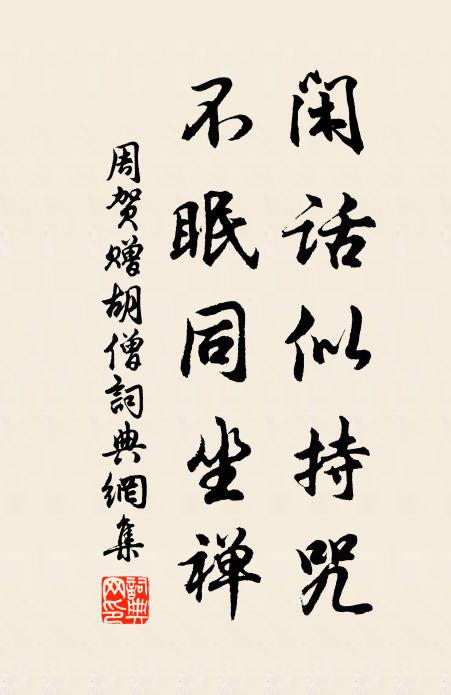 闲话似持咒
不眠同坐禅
周贺赠胡僧词典網集
詞典网印